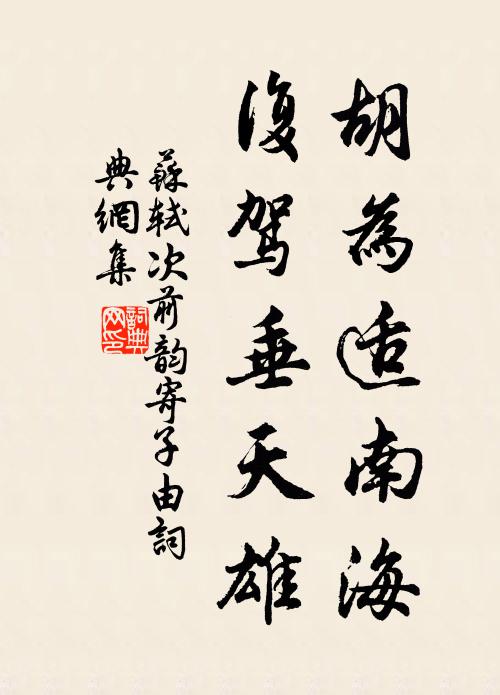 胡為适南海
復駕垂天雄
蘇軾次前韵寄子由詞
典網集
詞典
网印